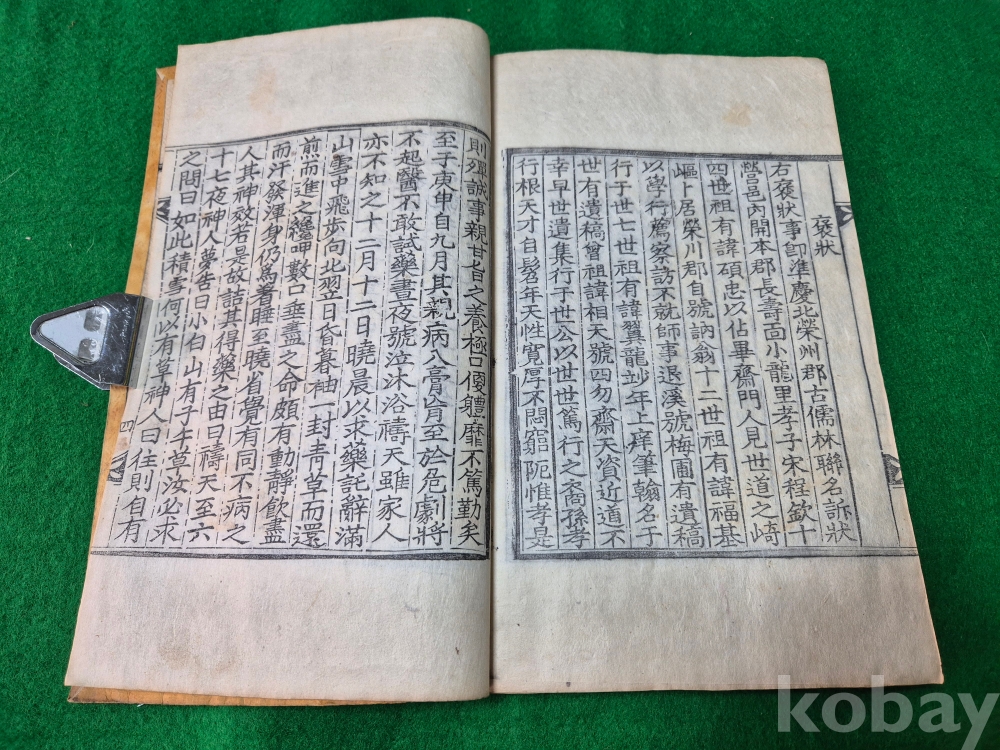 褒狀
右褒狀事卽準慶北榮州郡古儒林聯名訴狀
營邑內開本郡長壽面小龍里孝子宋程欽十
四世祖有諱碩忠以佔畢齋門人見世道之崎
嶇卜居榮川郡自號訥翁十二世祖有諱福基
以學行薦察訪不就師事退溪號梅圃有遺稿
行于世七世祖有諱翼龍妙年上庠筆翰名于
世有遺稿曾祖諱相天號四勿齋天資近道不
幸早世遺集行于世公以世世篤行之裔孫孝
行根天才自髫年天性寬厚不悶窮阨惟孝是
則殫誠事親甘旨之養極口優軆靡不篤勤矣
至于庚申自九月其親病入膏肓至於危劇將
不起醫不敢試藥晝夜號泣沐浴禱天雖家人
亦不知之十二月十二日曉晨以求藥託辭滿
山雪中飛步向北翌日昏暮袖一封靑草而還
煎而進之纔呷數口垂盡之命頗有動靜飮盡
而汗發渾身仍爲着睡至曉省覺有同不病之
人其神效若是故詰其得藥之由曰禱天至六
十七夜神人夢告曰小白山有子午草汝必求
之問曰如此積雪何以有草神人曰往則自有
四
kobay